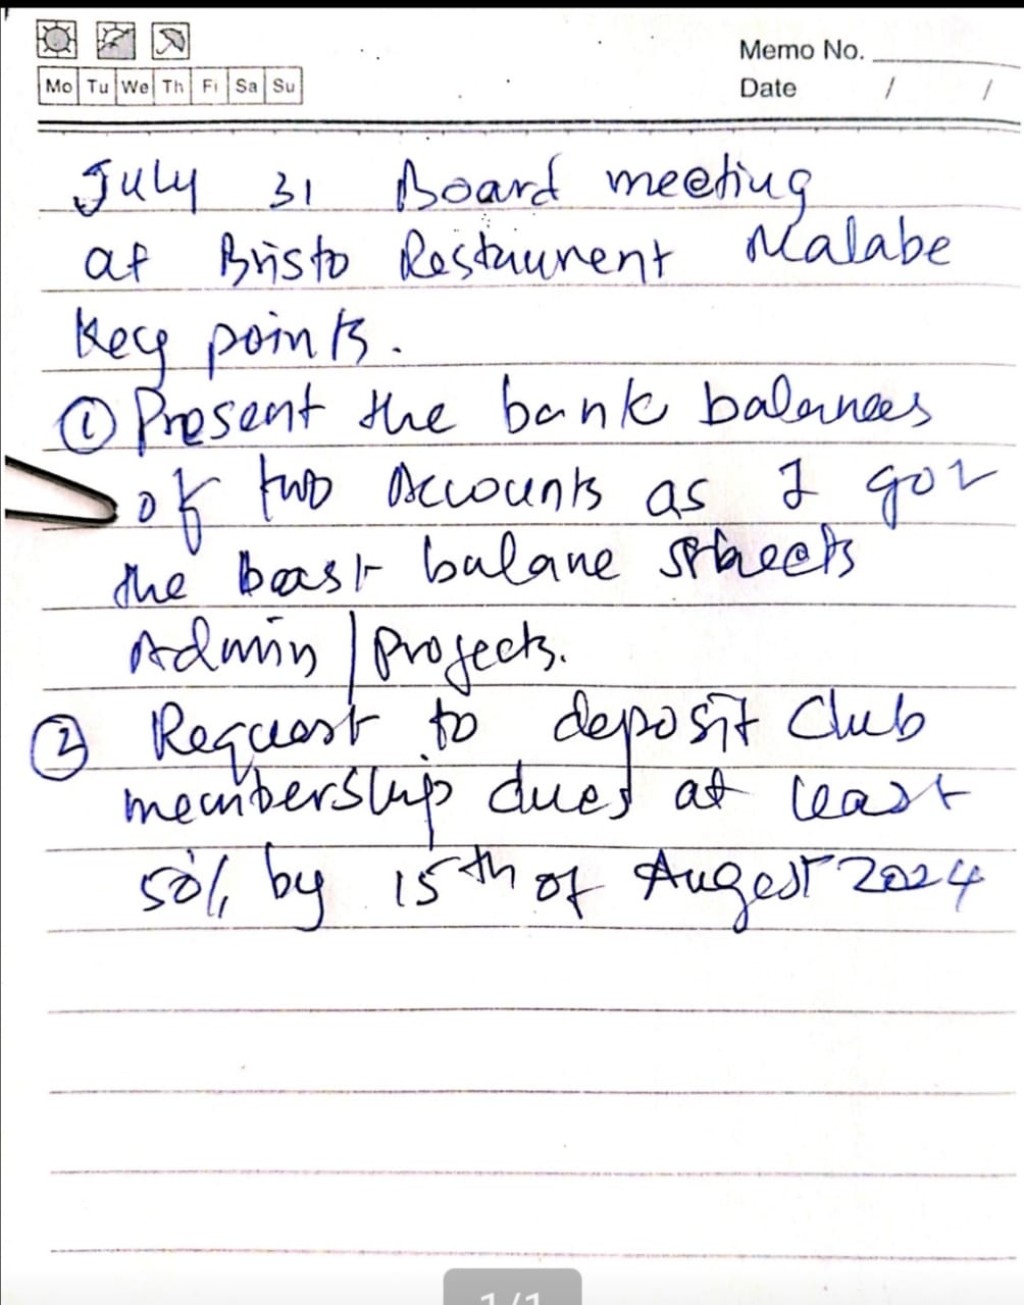 Mo Tu We Th Fi Sa Su
Memo No.
Date / /
July 31 Board meeting
at Bristo Restaurent Malabe
Key points.
① Present the bank balances
of two Accounts as I got
the balane sheets
Admin / projects.
② Request to deposit Club
membership dues at least
50% by 15th of Augest 2024
1/1